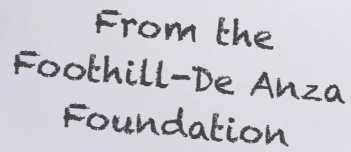 From the
Foothill-De Anza
Foundation